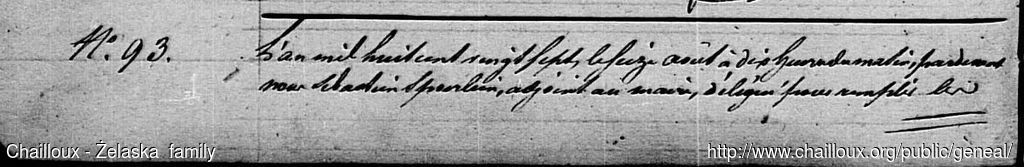 N.º 93.
L'an mil huit cent vingt sept, le seize août à dix heures du matin, pardevant
nous Sébastien Spoerlein, adjoint au maire, délégué pour remplir les
Chailloux - Żelaska family
http://www.chailloux.org/public/geneal/